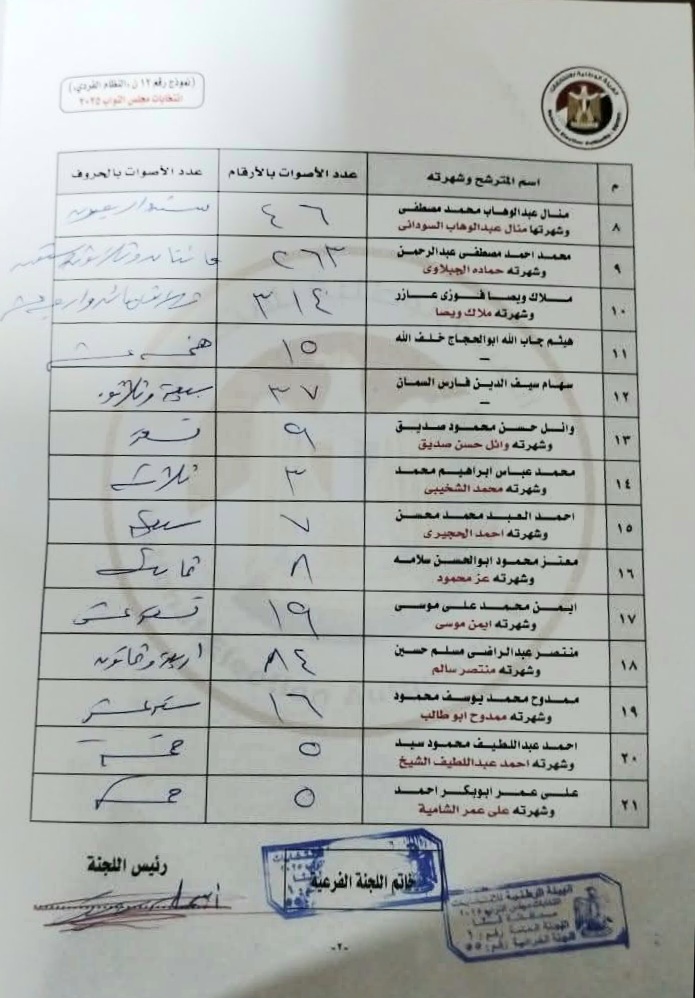 (نموذج رقم ١٢ ن.النظام الفردي.)
انتخابات مجلس النواب ٢٠٢٥
الهيئة الوطنية للانتخابات
National Election Authority
م اسم المترشح وشهرته عدد الأصوات بالأرقام عدد الأصوات بالحروف
٨ منال عبدالوهاب محمد مصطفى ٤٦ ستة واربعون
وشهرتها منال عبدالوهاب السودانى
٩ محمد احمد مصطفى عبدالرحمن ٢٦٣
وشهرته حماده الجبلاوى
١٠ ملاك ويصا فوزى عازر ٣١٤
وشهرته ملاك ويصا
١١ هيثم جاب الله ابوالحجاج خلف الله ١٥ خمسة عشر
—
١٢ سهام سيف الدين فارس السمان ٣٧ سبعة وثلاثون
—
١٣ وائل حسن محمود صديق ٩ تسعة
وشهرته وائل حسن صديق
١٤ محمد عباس ابراهيم محمد ٣ ثلاثة
وشهرته محمد الشخيبى
١٥ احمد العبد محمد محسن ٧ سبعة
وشهرته احمد الحجيرى
١٦ معتز محمود ابوالحسن سلامه ٨ ثمانية
وشهرته عز محمود
١٧ ايمن محمد على موسى ١٩ تسعة عشر
وشهرته ايمن موسى
١٨ منتصر عبدالراضى مسلم حسين ٨٤ اربعة وثمانون
وشهرته منتصر سالم
١٩ ممدوح محمد يوسف محمود ١٦ ستة عشر
وشهرته ممدوح ابو طالب
٢٠ احمد عبداللطيف محمود سيد ٥ خمسة
وشهرته احمد عبداللطيف الشيخ
٢١ على عمر ابوبكر احمد ٥ خمسة
وشهرته على عمر الشامية
خاتم اللجنة الفرعية
رئيس اللجنة
الهيئة الوطنية للانتخابات
انتخابات مجلس النواب ٢٠٢٥
محافظة قنا
اللجنة العامة رقم: ١
اللجنة الفرعية رقم: ٥٥
-٢-